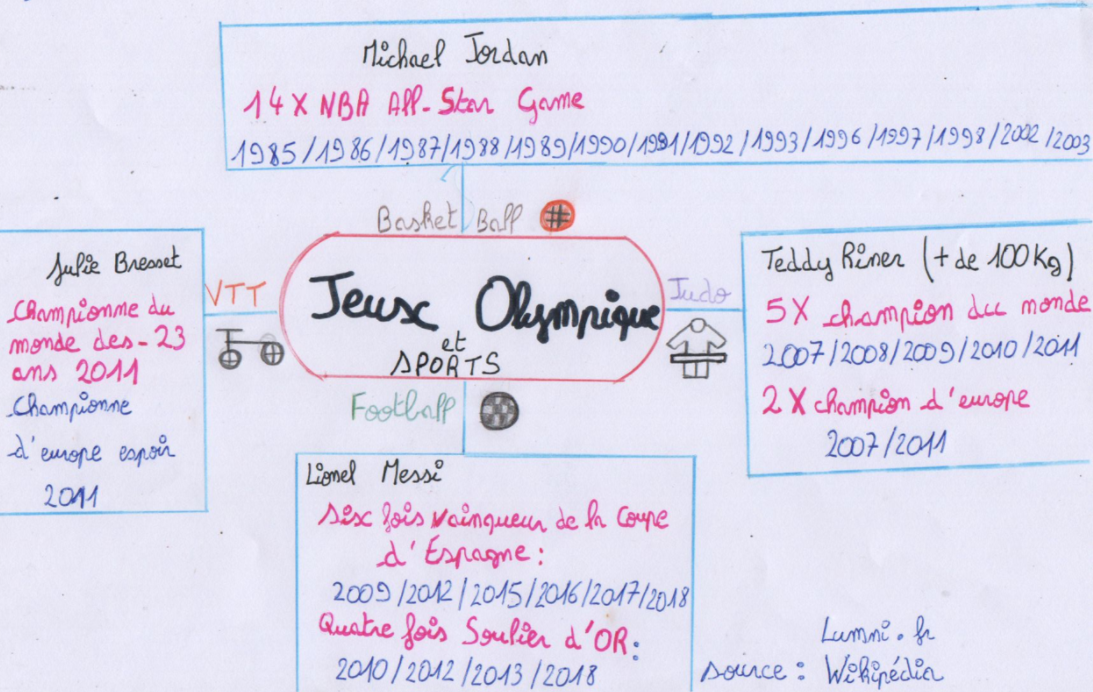 Michael Jordan
14 X NBA All-Star Game
1985/1986/1987/1988/1989/1990/1991/1992/1993/1996/1997/1998/2002/2003
Basket Ball
Julie Bresset
Championne du
monde des-23
ans 2011
Championne
d'europe espoir
2011
VTT
Jeux Olympique
et
SPORTS
Judo
Teddy Riner (+ de 100 Kg)
5 X champion du monde
2007/2008/2009/2010/2011
2 X champion d'europe
2007/2011
Football
Lionel Messi
Six fois vainqueur de la Coupe
d'Espagne:
2009/2012/2015/2016/2017/2018
Quatre fois Soulier d'OR:
2010/2012/2013/2018
Lumni.fr
source: Wikipédia